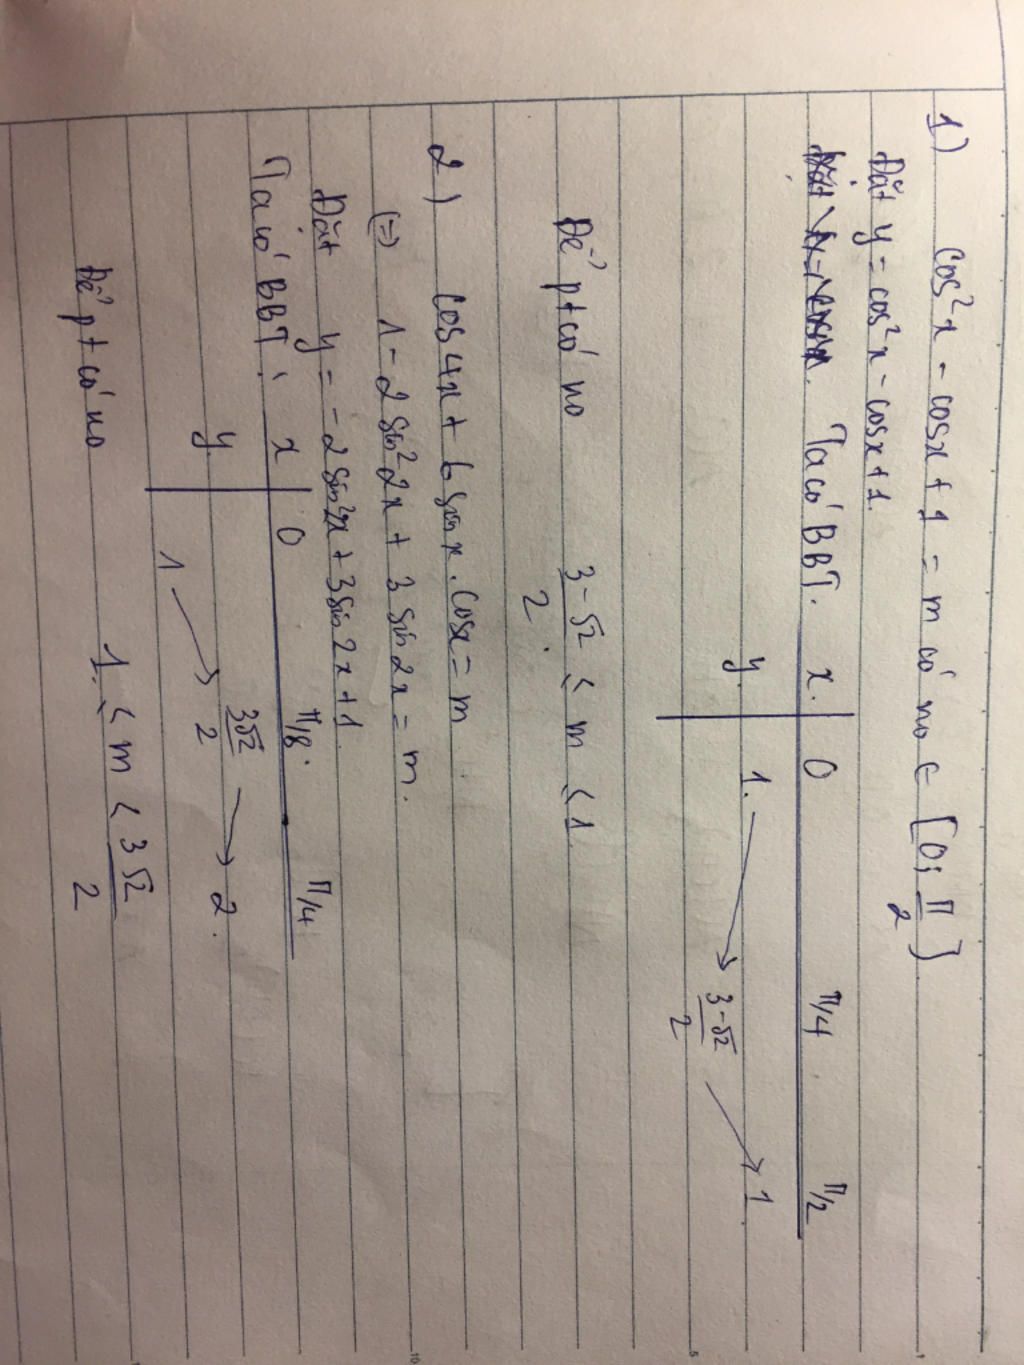 1) cos²x - cosx + 1 = m có no ∈ [0; π/2]
Đặt y = cos²x - cosx + 1.
Ta có BBT. x. 0 π/4 π/2
y. 1. → (3-√2)/2 → 1
Để pt có no (3-√2)/2 ≤ m < 1.
2) cos4x + 6 sinx.cosx = m
(=) 1 - 2 sin²2x + 3 sin 2x = m.
Đặt y = -2 sin²2x + 3 sin 2x + 1.
Ta có BBT: x 0 π/8. π/4
y. 1 → 3√2/2 → 2.
Để pt có no 1. ≤ m < 3√2/2